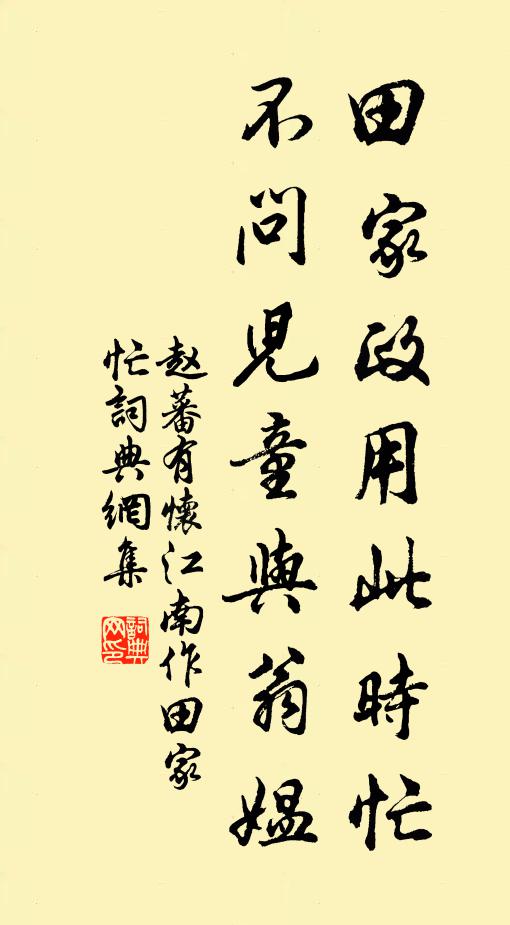 田家政用此時忙
不問児童與翁媼
赵蕃有懷江南作田家
忙詞典網集
詞典
网印